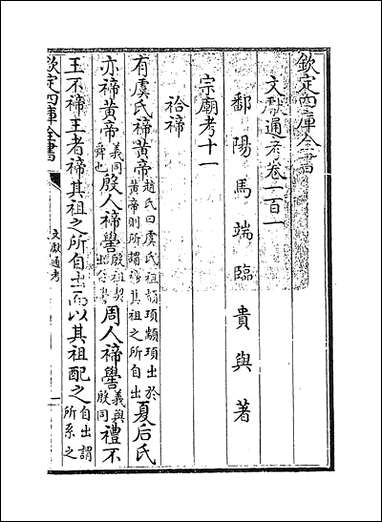 欽定四庫全書
文獻通考卷一百一
鄱陽馬端臨貴與著
宗廟考十一
祫禘
有虞氏禘黃帝趙氏曰虞氏祖顓頊顓頊出於黃帝則所謂禘其祖之所自出夏后氏
亦禘黃帝義同舜也殷人禘嚳殷祖契出自嚳周人禘嚳義與殷同禮不
王不禘王者禘其祖之所自出而以其祖配之自出謂所系之
欽定四庫全書
文獻通考
一